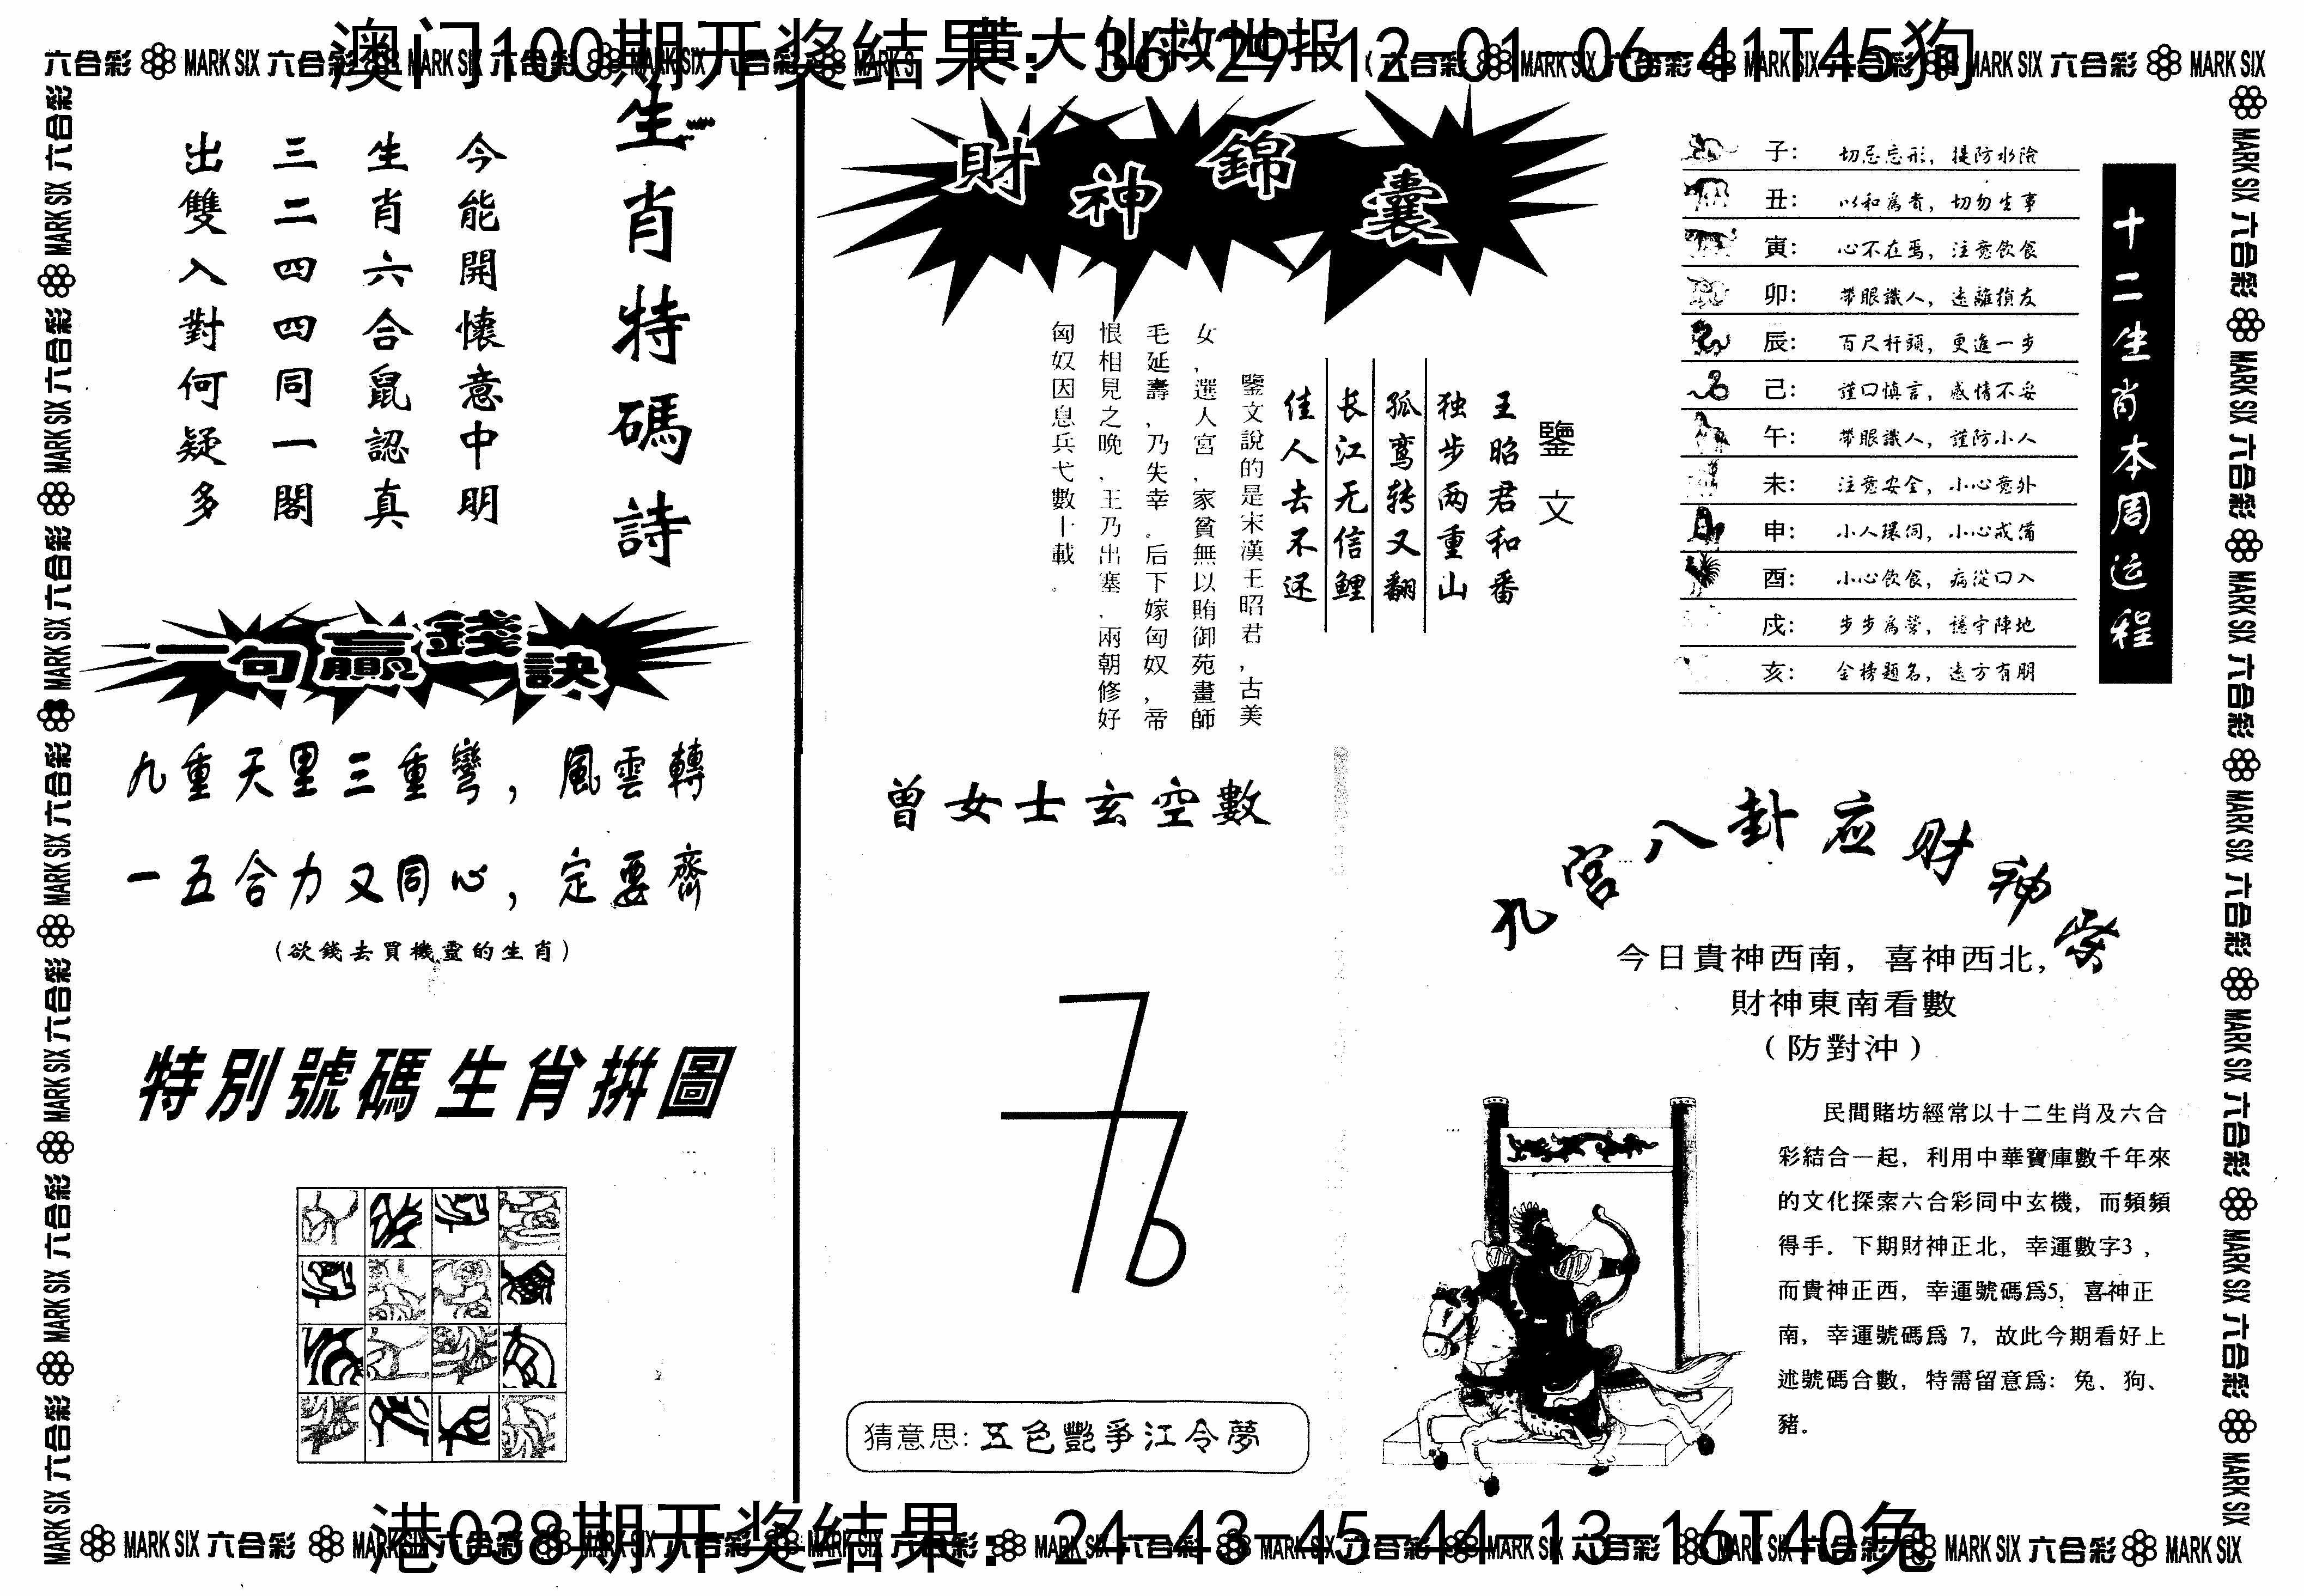 澳门100期开奖结果：36-29-12-01-06-41T45狗
黃大仙救世报
六合彩 MARK SIX 六合彩 MARK SIX 六合彩 MARK SIX 六合彩 MARK SIX
六合彩 MARK SIX 六合彩 MARK SIX 六合彩 MARK SIX 六合彩 MARK SIX
生肖特碼詩
今能開懷意中明
生肖六合鼠認真
三二四四同一閣
出雙入對何疑多
一句贏錢訣
九重天里三重彎，風雲轉
一五合力又同心，定要齊
（欲錢去買機靈的生肖）
特別號碼生肖拼圖
財神錦囊
鑒文
王昭君和番
独步两重山
孤鸾转又翻
长江无信鲤
佳人去不还
鑒文說的是宋漢王昭君,古美
女,選人宮,家貧無以賄御苑畫師
毛延壽,乃失幸。后下嫁匈奴,帝
恨相見之晚,王乃出塞,兩朝修好
匈奴因息兵弋數十載。
曾女士玄空數
猜意思:五色艷爭江令夢
十二生肖本周运程
子：切忌忘形，提防水險
丑：以和為貴，切勿生事
寅：心不在焉，注意飲食
卯：帶眼識人，遠離損友
辰：百尺杆頭，更進一步
己：謹口慎言，感情不妥
午：帶眼識人，謹防小人
未：注意安全，小心意外
申：小人環伺，小心戒備
酉：小心飲食，病從口入
戍：步步為營，穩守陣地
亥：金榜題名，遠方有朋
九宮八卦应财神
今日貴神西南，喜神西北，
財神東南看數
（防對沖）
民間賭坊經常以十二生肖及六合
彩結合一起，利用中華寶庫數千年來
的文化探索六合彩同中玄機，而頻頻
得手．下期財神正北，幸運數字3，
而貴神正西，幸運號碼爲5，喜神正
南，幸運號碼爲 7，故此今期看好上
述號碼合數，特需留意爲：兔、狗、
豬．
港038期开奖结果：24-43-45-44-13-16T40兔
MARK SIX 六合彩 MARK SIX 六合彩 MARK SIX 六合彩 MARK SIX 六合彩 MARK SIX